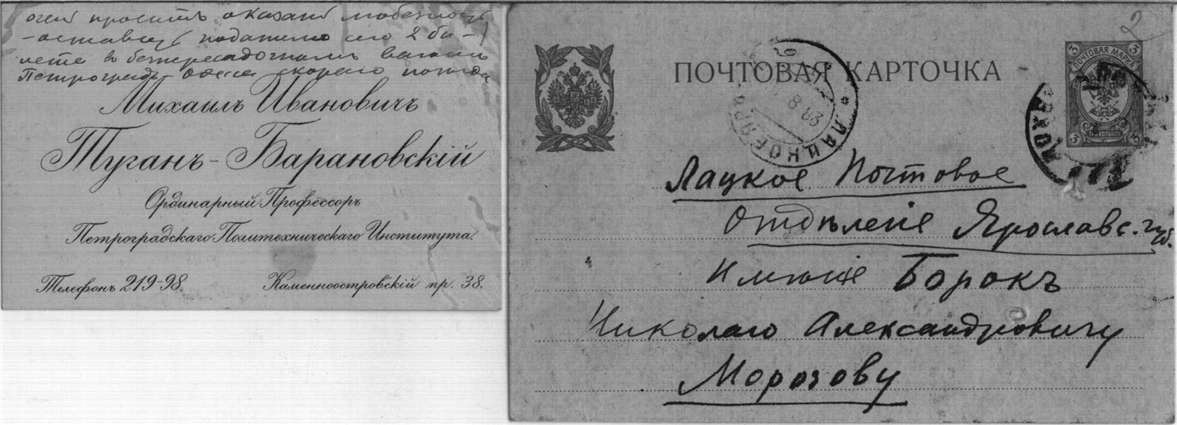 очень просить оказать любезность
оставить подателю сего 2 би-
лета в безпересадочномъ вагонѣ
Петроградъ Одесса скораго поѣзда
Михаилъ Ивановичъ
Туганъ-Барановскій
Ординарный Профессоръ
Петроградскаго Политехническаго Института.
Телефонъ 219-98. Каменноостровскій пр. 38.
2
ПОЧТОВАЯ КАРТОЧКА
3 ПОЧТОВАЯ МАРКА 3
3 3
ЛАЦКОЕ ЯРО
Лацкое Почтовое
Отдѣленіе Ярославс. губ.
Имѣніе Борокъ
Николаю Александровичу
Морозову